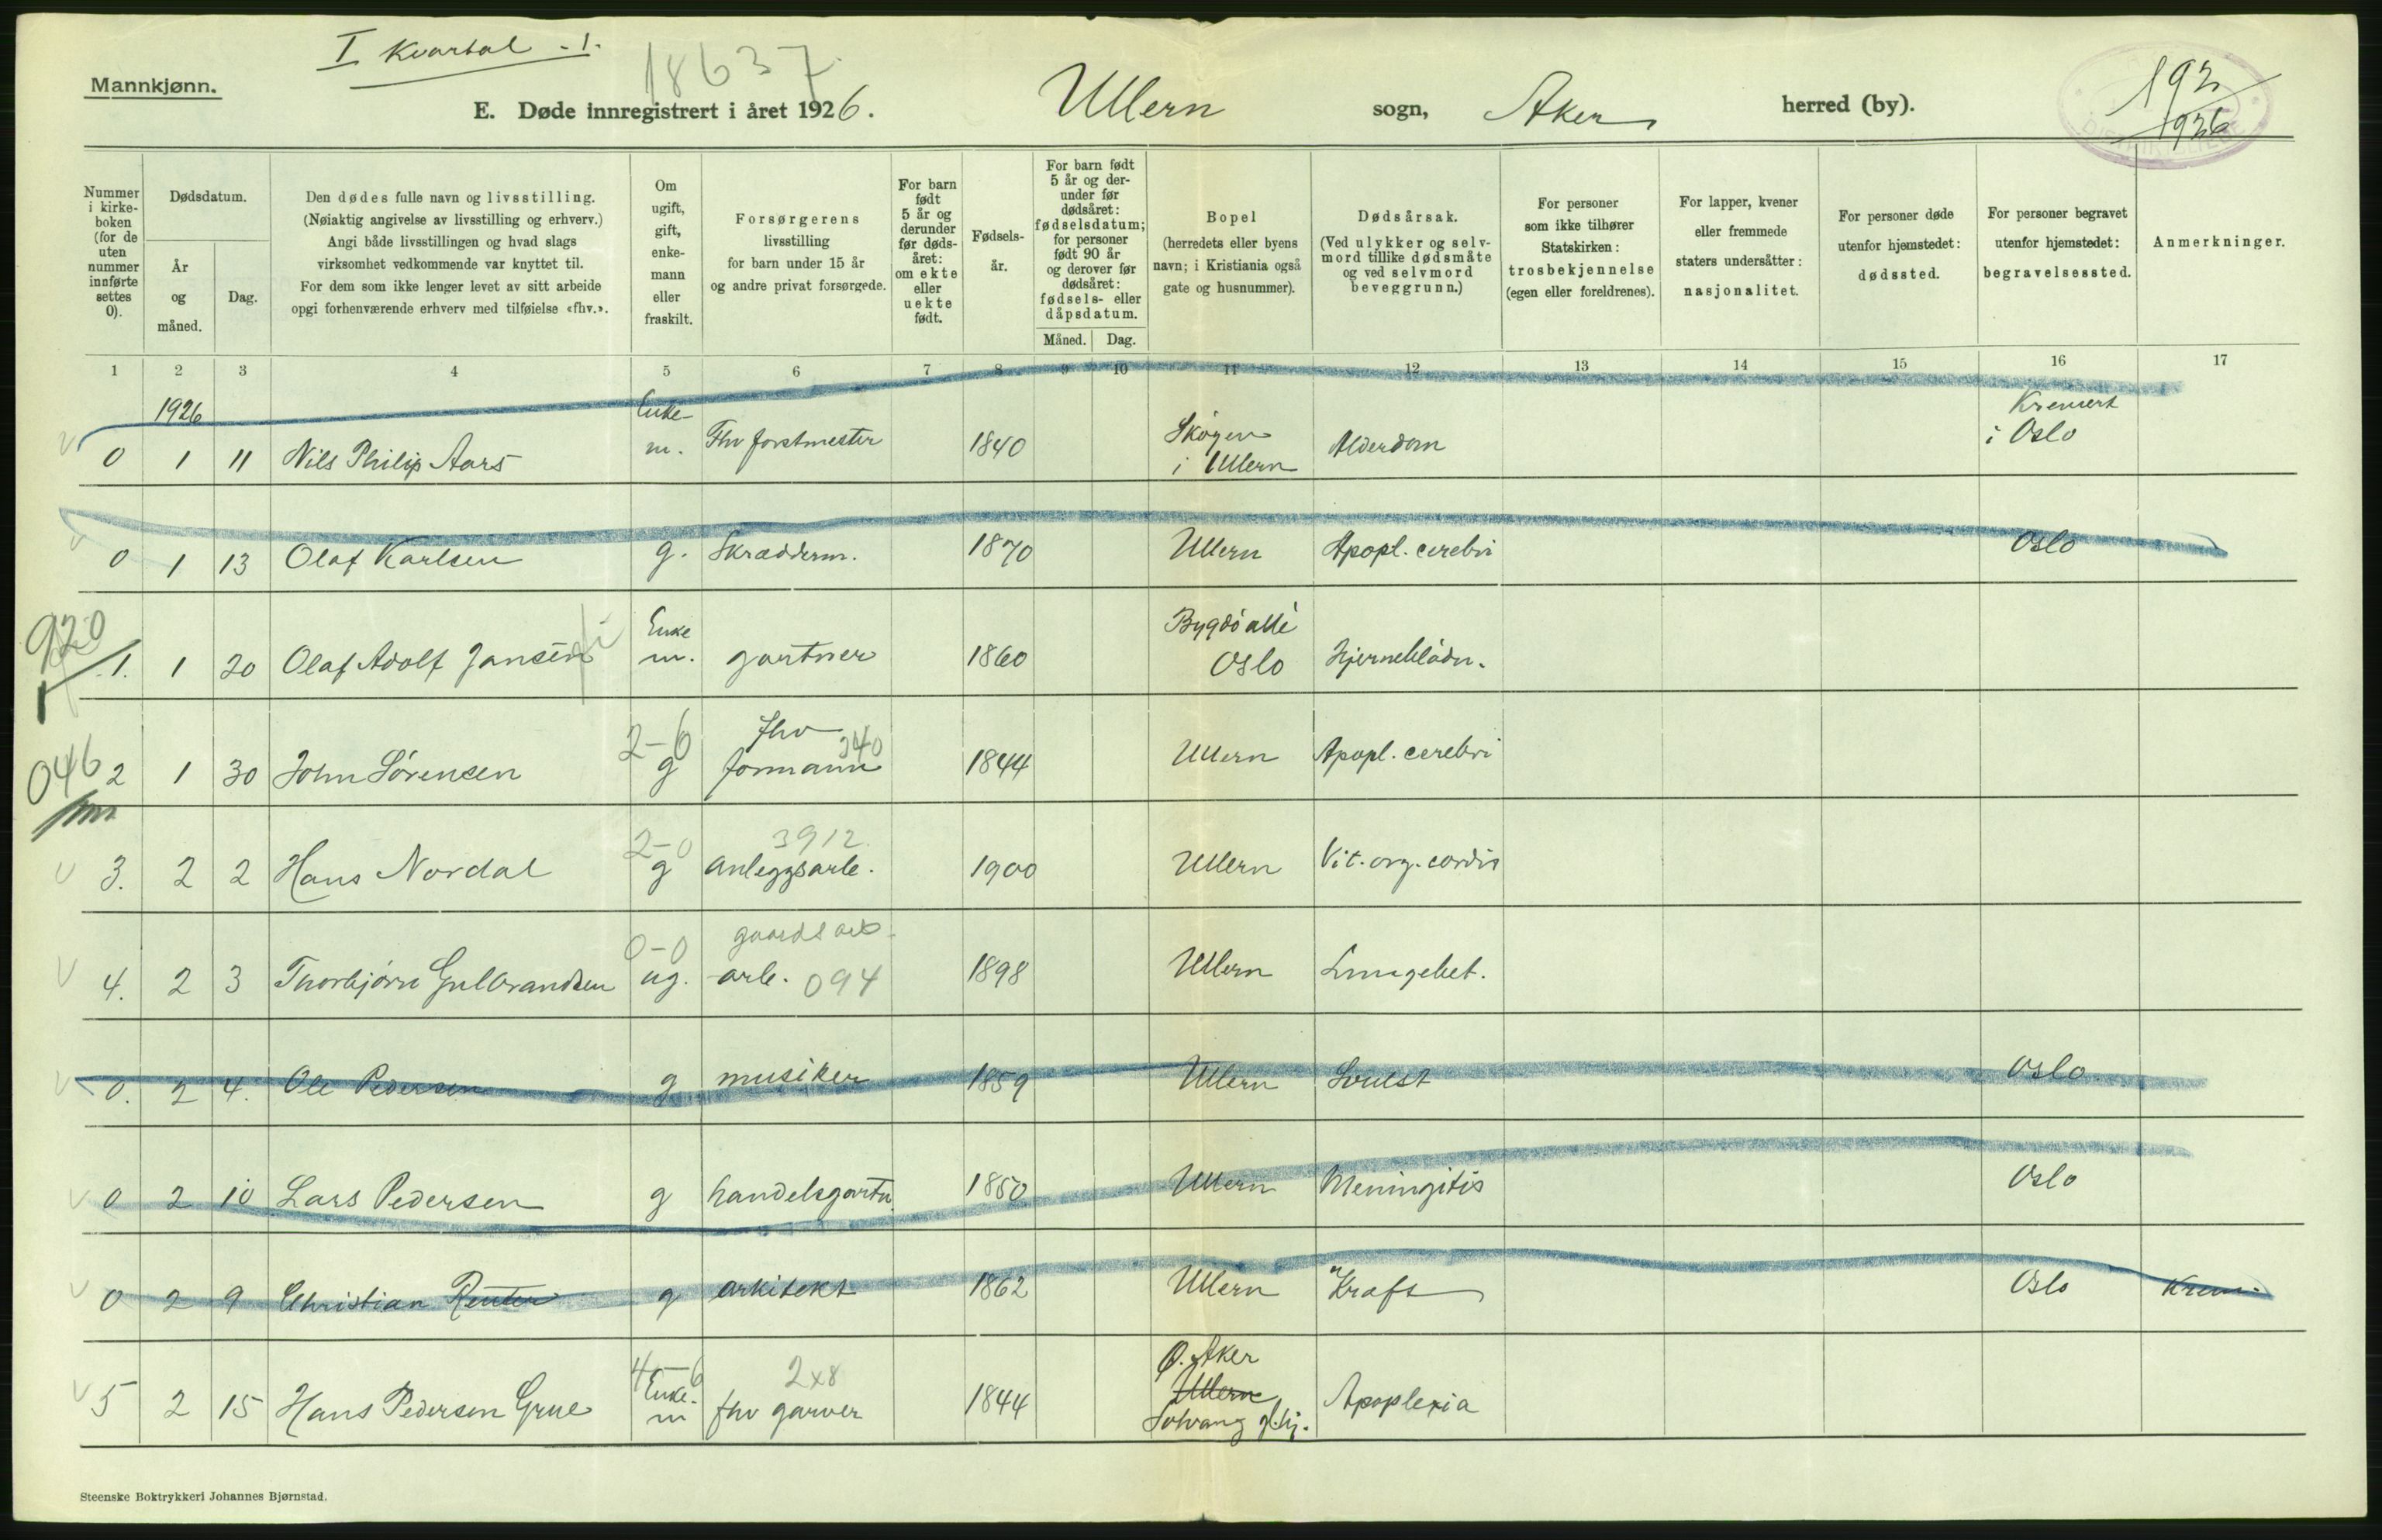 I Kvartal - 1.
18637
Mannkjønn.
E. Døde innregistrert i året 1926. Ullern sogn, Aker herred (by).
192
1926
Nummer i kirke- boken (for de uten nummer innførte settes 0).
Dødsdatum.
År og måned.
Dag.
Den dødes fulle navn og livsstilling.
(Nøiaktig angivelse av livsstilling og erhverv.)
Angi både livsstillingen og hvad slags
virksomhet vedkommende var knyttet til.
For dem som ikke lenger levet av sitt arbeide
opgi forhenværende erhverv med tilføielse «fhv.».
Om ugift, gift, enke- mann eller fraskilt.
Forsørgerens
livsstilling
for barn under 15 år
og andre privat forsørgede.
For barn født 5 år og derunder før døds- året: om ekte eller uekte født.
Fødsels- år.
For barn født 5 år og der- under før dødsåret: fødselsdatum; for personer født 90 år og derover før dødsåret: fødsels- eller dåpsdatum.
Måned. Dag.
Bopel
(herredets eller byens
navn; i Kristiania også
gate og husnummer).
Dødsårsak.
(Ved ulykker og selv-
mord tillike dødsmåte
og ved selvmord
beveggrunn.)
For personer
som ikke tilhører
Statskirken:
trosbekjennelse
(egen eller foreldrenes).
For lapper, kvener
eller fremmede
staters undersåtter:
nasjonalitet.
For personer døde
utenfor hjemstedet:
dødssted.
For personer begravet
utenfor hjemstedet:
begravelsessted.
Anmerkninger.
1 2 3 4 5 6 7 8 9 10 11 12 13 14 15 16 17
1926
0 1 11 Nils Philip Aars Enke- m. Fhv forstmester 1840 Skøyen i Ullern Alderdom Kremert i Oslo
0 1 13 Olaf Karlsen g. Skrædderm. 1870 Ullern Apopl. cerebri Oslo
920
1. 1 20 Olaf Adolf Jansen Enke m. gartner 1860 Bygdø allé Oslo Hjerneblødn.
046
2 1 30 John Sørensen 2-6 g fhv formann 340 1844 Ullern Apopl. cerebri
3. 2 2 Hans Nordal 2-0 g 3912 anleggsarb. 1900 Ullern Vit. org. cordis
4. 2 3 Thorbjørn Gulbrandsen 0-0 ug. gaards arb. arb. 094 1898 Ullern Lungebet.
0. 2 4. Ole Pedersen g musiker 1859 Ullern Svulst Oslo
0 2 10 Lars Pedersen g handelsgartn. 1850 Ullern Meningitis Oslo
0 2 9 Christian Reuter g arkitekt 1862 Ullern Kraft Oslo Krem.
5 2 15 Hans Pedersen Grue 4-6 Enke- m 2x8 fhv garver 1844 Ø. Aker Ullern Solvang g.hj. Apoplexia
Steenske Boktrykkeri Johannes Bjørnstad.